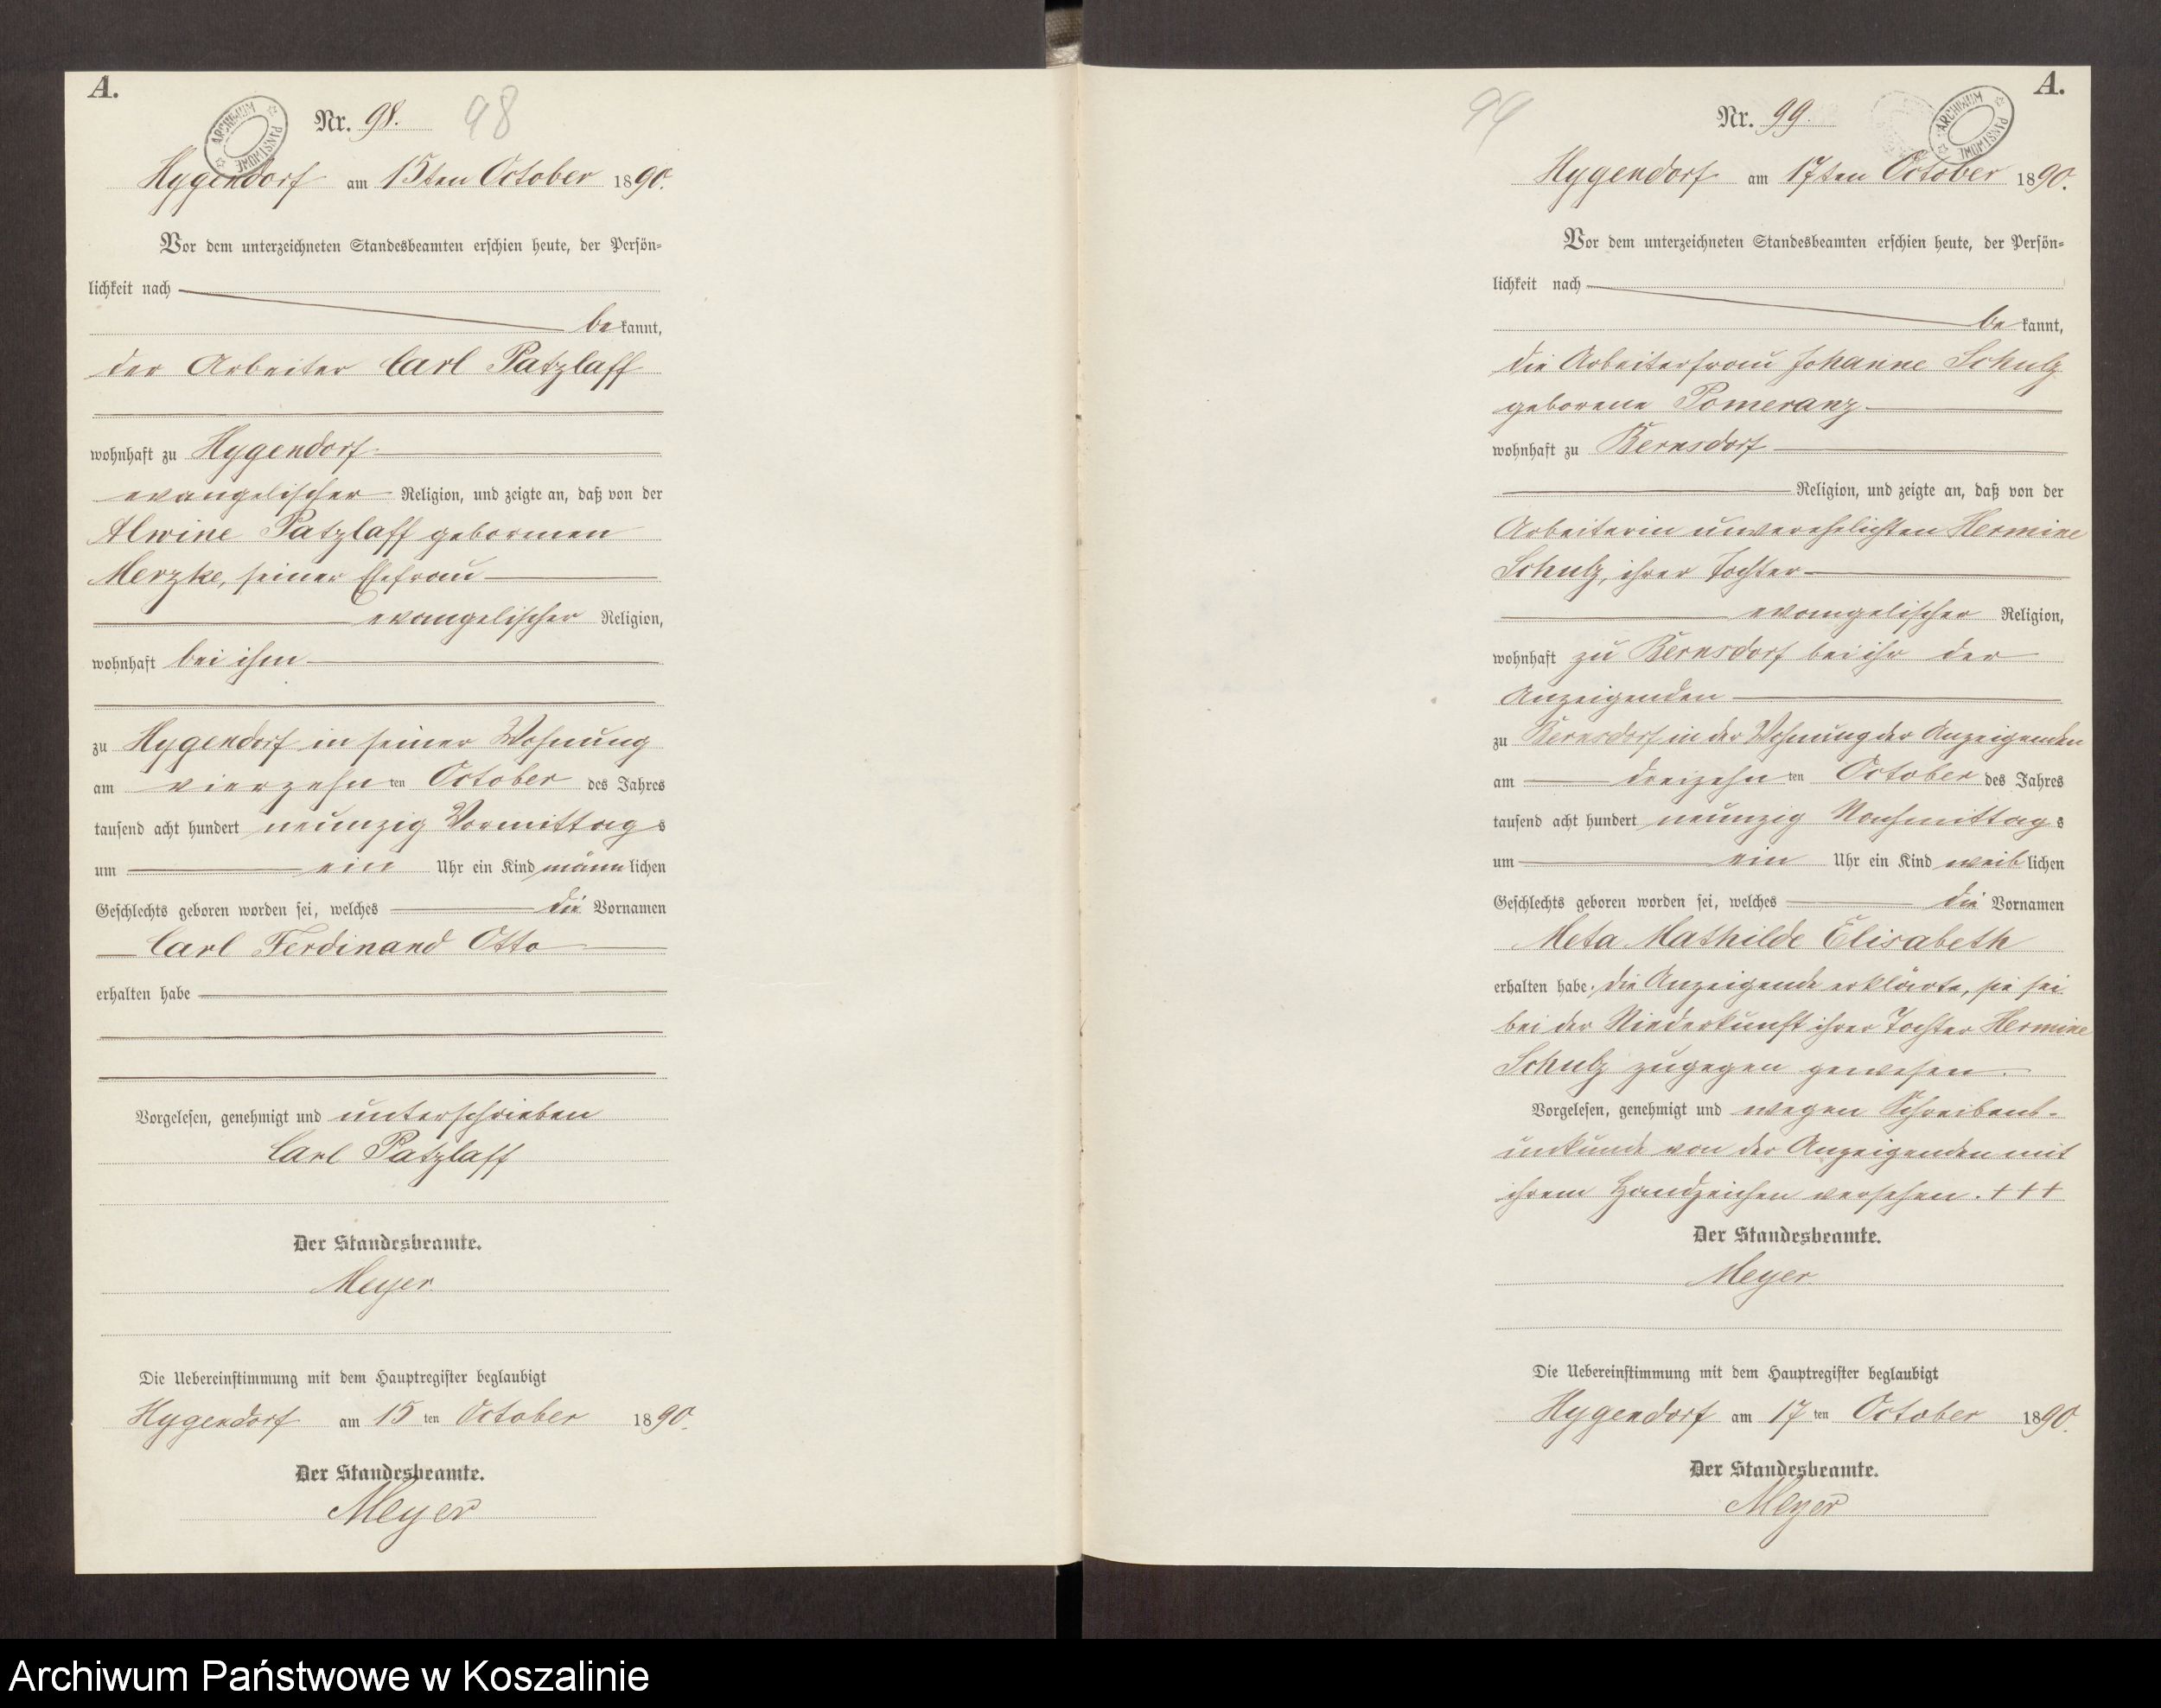 A.
Nr. 98. 98
ARCHIWUM PAŃSTWOWE
Hygendorf am 15ten October 1890.
Vor dem unterzeichneten Standesbeamten erschien heute, der Persön=
lichkeit nach
bekannt,
der Arbeiter Carl Patzlaff
wohnhaft zu Hygendorf
evangelischer Religion, und zeigte an, daß von der
Alwine Patzlaff gebornnen
Merzke, seiner Ehefrau
evangelischer Religion,
wohnhaft bei ihm
zu Hygendorf in seiner Wohnung
am vierzehnten October des Jahres
tausend acht hundert neunzig Vormittags
um ein Uhr ein Kind männlichen
Geschlechts geboren worden sei, welches die Vornamen
Carl Ferdinand Otto
erhalten habe
Vorgelesen, genehmigt und unterschrieben
Carl Patzlaff
Der Standesbeamte.
Meyer.
Die Uebereinstimmung mit dem Hauptregister beglaubigt
Hygendorf am 15ten October 1890.
Der Standesbeamte.
Meyer
A.
99 Nr. 99.
ARCHIWUM PAŃSTWOWE
Hygendorf am 17ten October 1890.
Vor dem unterzeichneten Standesbeamten erschien heute, der Persön=
lichkeit nach
bekannt,
die Arbeiterfrau Johanne Schulz
geborene Pomeranz
wohnhaft zu Bernsdorf
Religion, und zeigte an, daß von der
Arbeiterin unverehelichten Hermine
Schulz, ihrer Tochter
evangelischer Religion,
wohnhaft zu Bernsdorf bei ihr der
Anzeigenden
zu Bernsdorf in der Wohnung der Anzeigenden
am dreizehnten October des Jahres
tausend acht hundert neunzig Nachmittags
um ein Uhr ein Kind weiblichen
Geschlechts geboren worden sei, welches die Vornamen
Meta Mathilde Elisabeth
erhalten habe. die Anzeigende erklärte, sie sei
bei der Niederkunft ihrer Tochter Hermine
Schulz zugegen gewesen.
Vorgelesen, genehmigt und wegen Schreibens-
unkunde von der Anzeigenden mit
ihrem Handzeichen versehen. +++
Der Standesbeamte.
Meyer.
Die Uebereinstimmung mit dem Hauptregister beglaubigt
Hygendorf am 17ten October 1890.
Der Standesbeamte.
Meyer
Archiwum Państwowe w Koszalinie